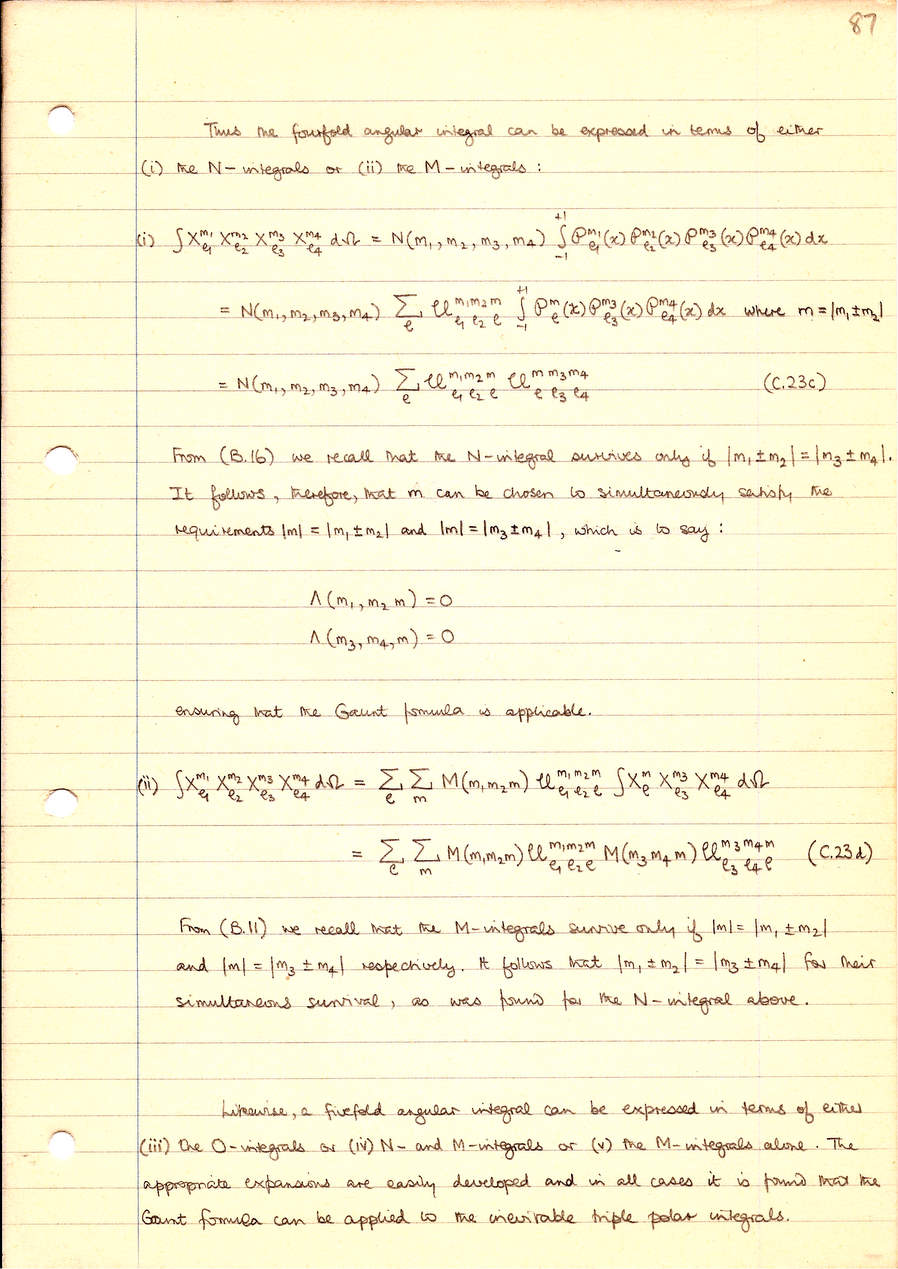 87
Thus the fourfold angular integral can be expressed in terms of either
(i) the N-integrals or (ii) the M-integrals :
(i) ∫X_{ℓ₁}^{m₁} X_{ℓ₂}^{m₂} X_{ℓ₃}^{m₃} X_{ℓ₄}^{m₄} dΩ = N(m₁, m₂, m₃, m₄) ∫_{-1}^{+1} P_{ℓ₁}^{m₁}(x) P_{ℓ₂}^{m₂}(x) P_{ℓ₃}^{m₃}(x) P_{ℓ₄}^{m₄}(x) dx
= N(m₁, m₂, m₃, m₄) ∑_ℓ 𝒰_{ℓ₁ ℓ₂ ℓ}^{m₁ m₂ m} ∫_{-1}^{+1} P_ℓ^m(x) P_{ℓ₃}^{m₃}(x) P_{ℓ₄}^{m₄}(x) dx where m = |m₁ ± m₂|
= N(m₁, m₂, m₃, m₄) ∑_ℓ 𝒰_{ℓ₁ ℓ₂ ℓ}^{m₁ m₂ m} 𝒰_{ℓ ℓ₃ ℓ₄}^{m m₃ m₄} (C.23c)
From (B.16) we recall that the N-integral survives only if |m₁ ± m₂| = |m₃ ± m₄|.
It follows, therefore, that m can be chosen to simultaneously satisfy the
requirements |m| = |m₁ ± m₂| and |m| = |m₃ ± m₄|, which is to say :
Λ(m₁, m₂ m) = 0
Λ(m₃, m₄, m) = 0
ensuring that the Gaunt formula is applicable.
(ii) ∫X_{ℓ₁}^{m₁} X_{ℓ₂}^{m₂} X_{ℓ₃}^{m₃} X_{ℓ₄}^{m₄} dΩ = ∑_ℓ ∑_m M(m₁m₂m) 𝒰_{ℓ₁ ℓ₂ ℓ}^{m₁ m₂ m} ∫X_ℓ^m X_{ℓ₃}^{m₃} X_{ℓ₄}^{m₄} dΩ
= ∑_ℓ ∑_m M(m₁m₂m) 𝒰_{ℓ₁ ℓ₂ ℓ}^{m₁ m₂ m} M(m₃ m₄ m) 𝒰_{ℓ₃ ℓ₄ ℓ}^{m₃ m₄ m} (C.23d)
From (B.11) we recall that the M-integrals survive only if |m| = |m₁ ± m₂|
and |m| = |m₃ ± m₄| respectively. It follows that |m₁ ± m₂| = |m₃ ± m₄| for their
simultaneous survival, as was found for the N-integral above.
Likewise, a fivefold angular integral can be expressed in terms of either
(iii) the O-integrals or (iv) N- and M-integrals or (v) the M-integrals alone. The
appropriate expansions are easily developed and in all cases it is found that the
Gaunt formula can be applied to the inevitable triple polar integrals.